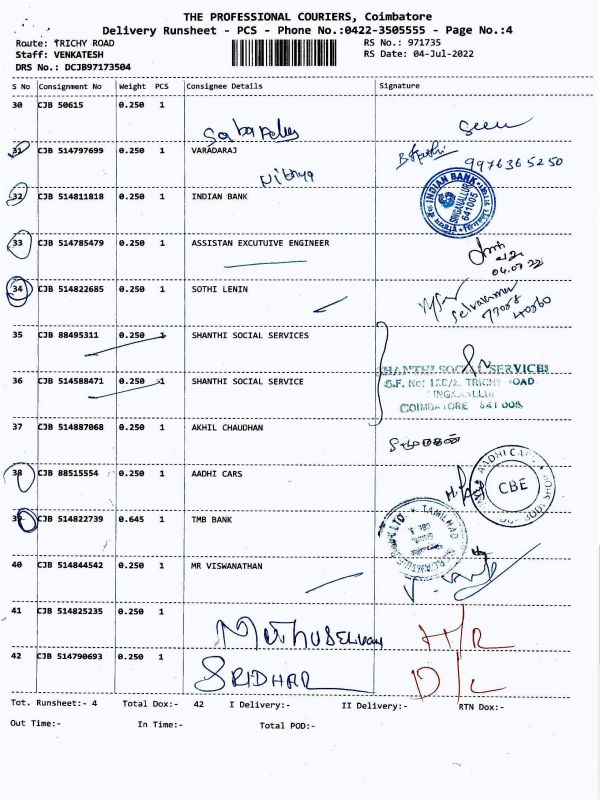 THE PROFESSIONAL COURIERS, Coimbatore
Delivery Runsheet - PCS - Phone No.:0422-3505555 - Page No.:4
Route: TRICHY ROAD RS No.: 971735
Staff: VENKATESH RS Date: 04-Jul-2022
DRS No.: DCJB97173504
S No Consignment No Weight PCS Consignee Details Signature
30 CJB 50615 0.250 1
31 CJB 514797699 0.250 1 VARADARAJ
9976365250
Nithya
32 CJB 514811818 0.250 1 INDIAN BANK
INDIAN BANK
SINGANALLUR
641005
33 CJB 514785479 0.250 1 ASSISTAN EXCUTUIVE ENGINEER
04.07.22
34 CJB 514822685 0.250 1 SOTHI LENIN
Selvakumar
77088
40860
35 CJB 88495311 0.250 1 SHANTHI SOCIAL SERVICES
36 CJB 514588471 0.250 1 SHANTHI SOCIAL SERVICE
SHANTHI SOCIAL SERVICES
TRICHY ROAD
COIMBATORE 641 005
37 CJB 514887068 0.250 1 AKHIL CHAUDHAN
38 CJB 88515554 0.250 1 AADHI CARS
AADHI CARS
CBE
39 CJB 514822739 0.645 1 TMB BANK
TAMILNAD
40 CJB 514844542 0.250 1 MR VISWANATHAN
41 CJB 514825235 0.250 1
MUTHUSELVAM H/R
42 CJB 514790693 0.250 1
SRIDHAR D/L
Tot. Runsheet:- 4 Total Dox:- 42 I Delivery:- II Delivery:- RTN Dox:-
Out Time:- In Time:- Total POD:-